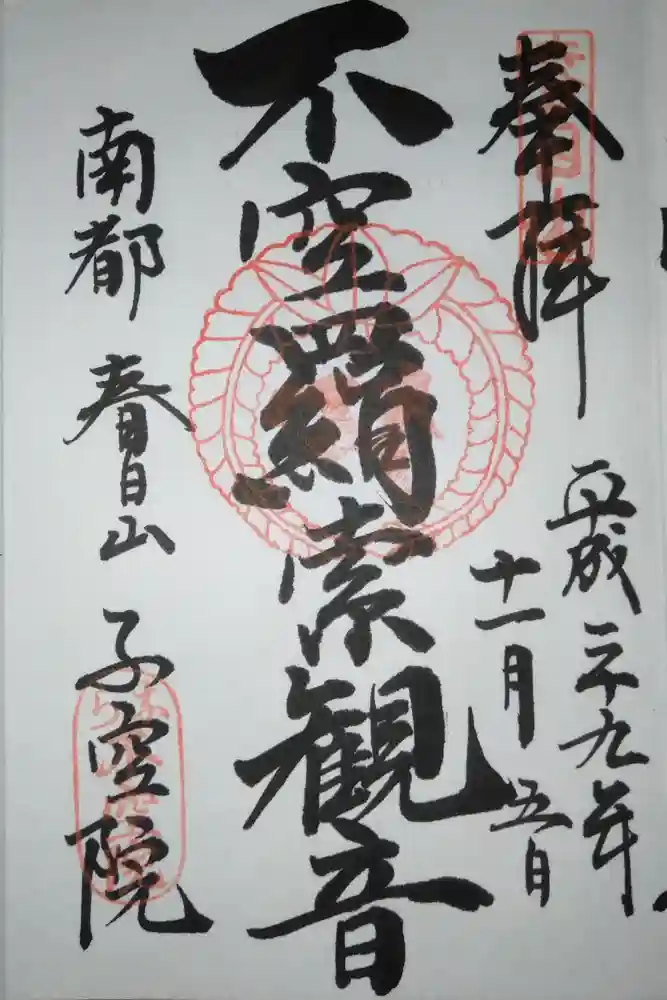 奉拝
平成二十九年
十一月五日
不空羂索観音
南都 春日山 不空院